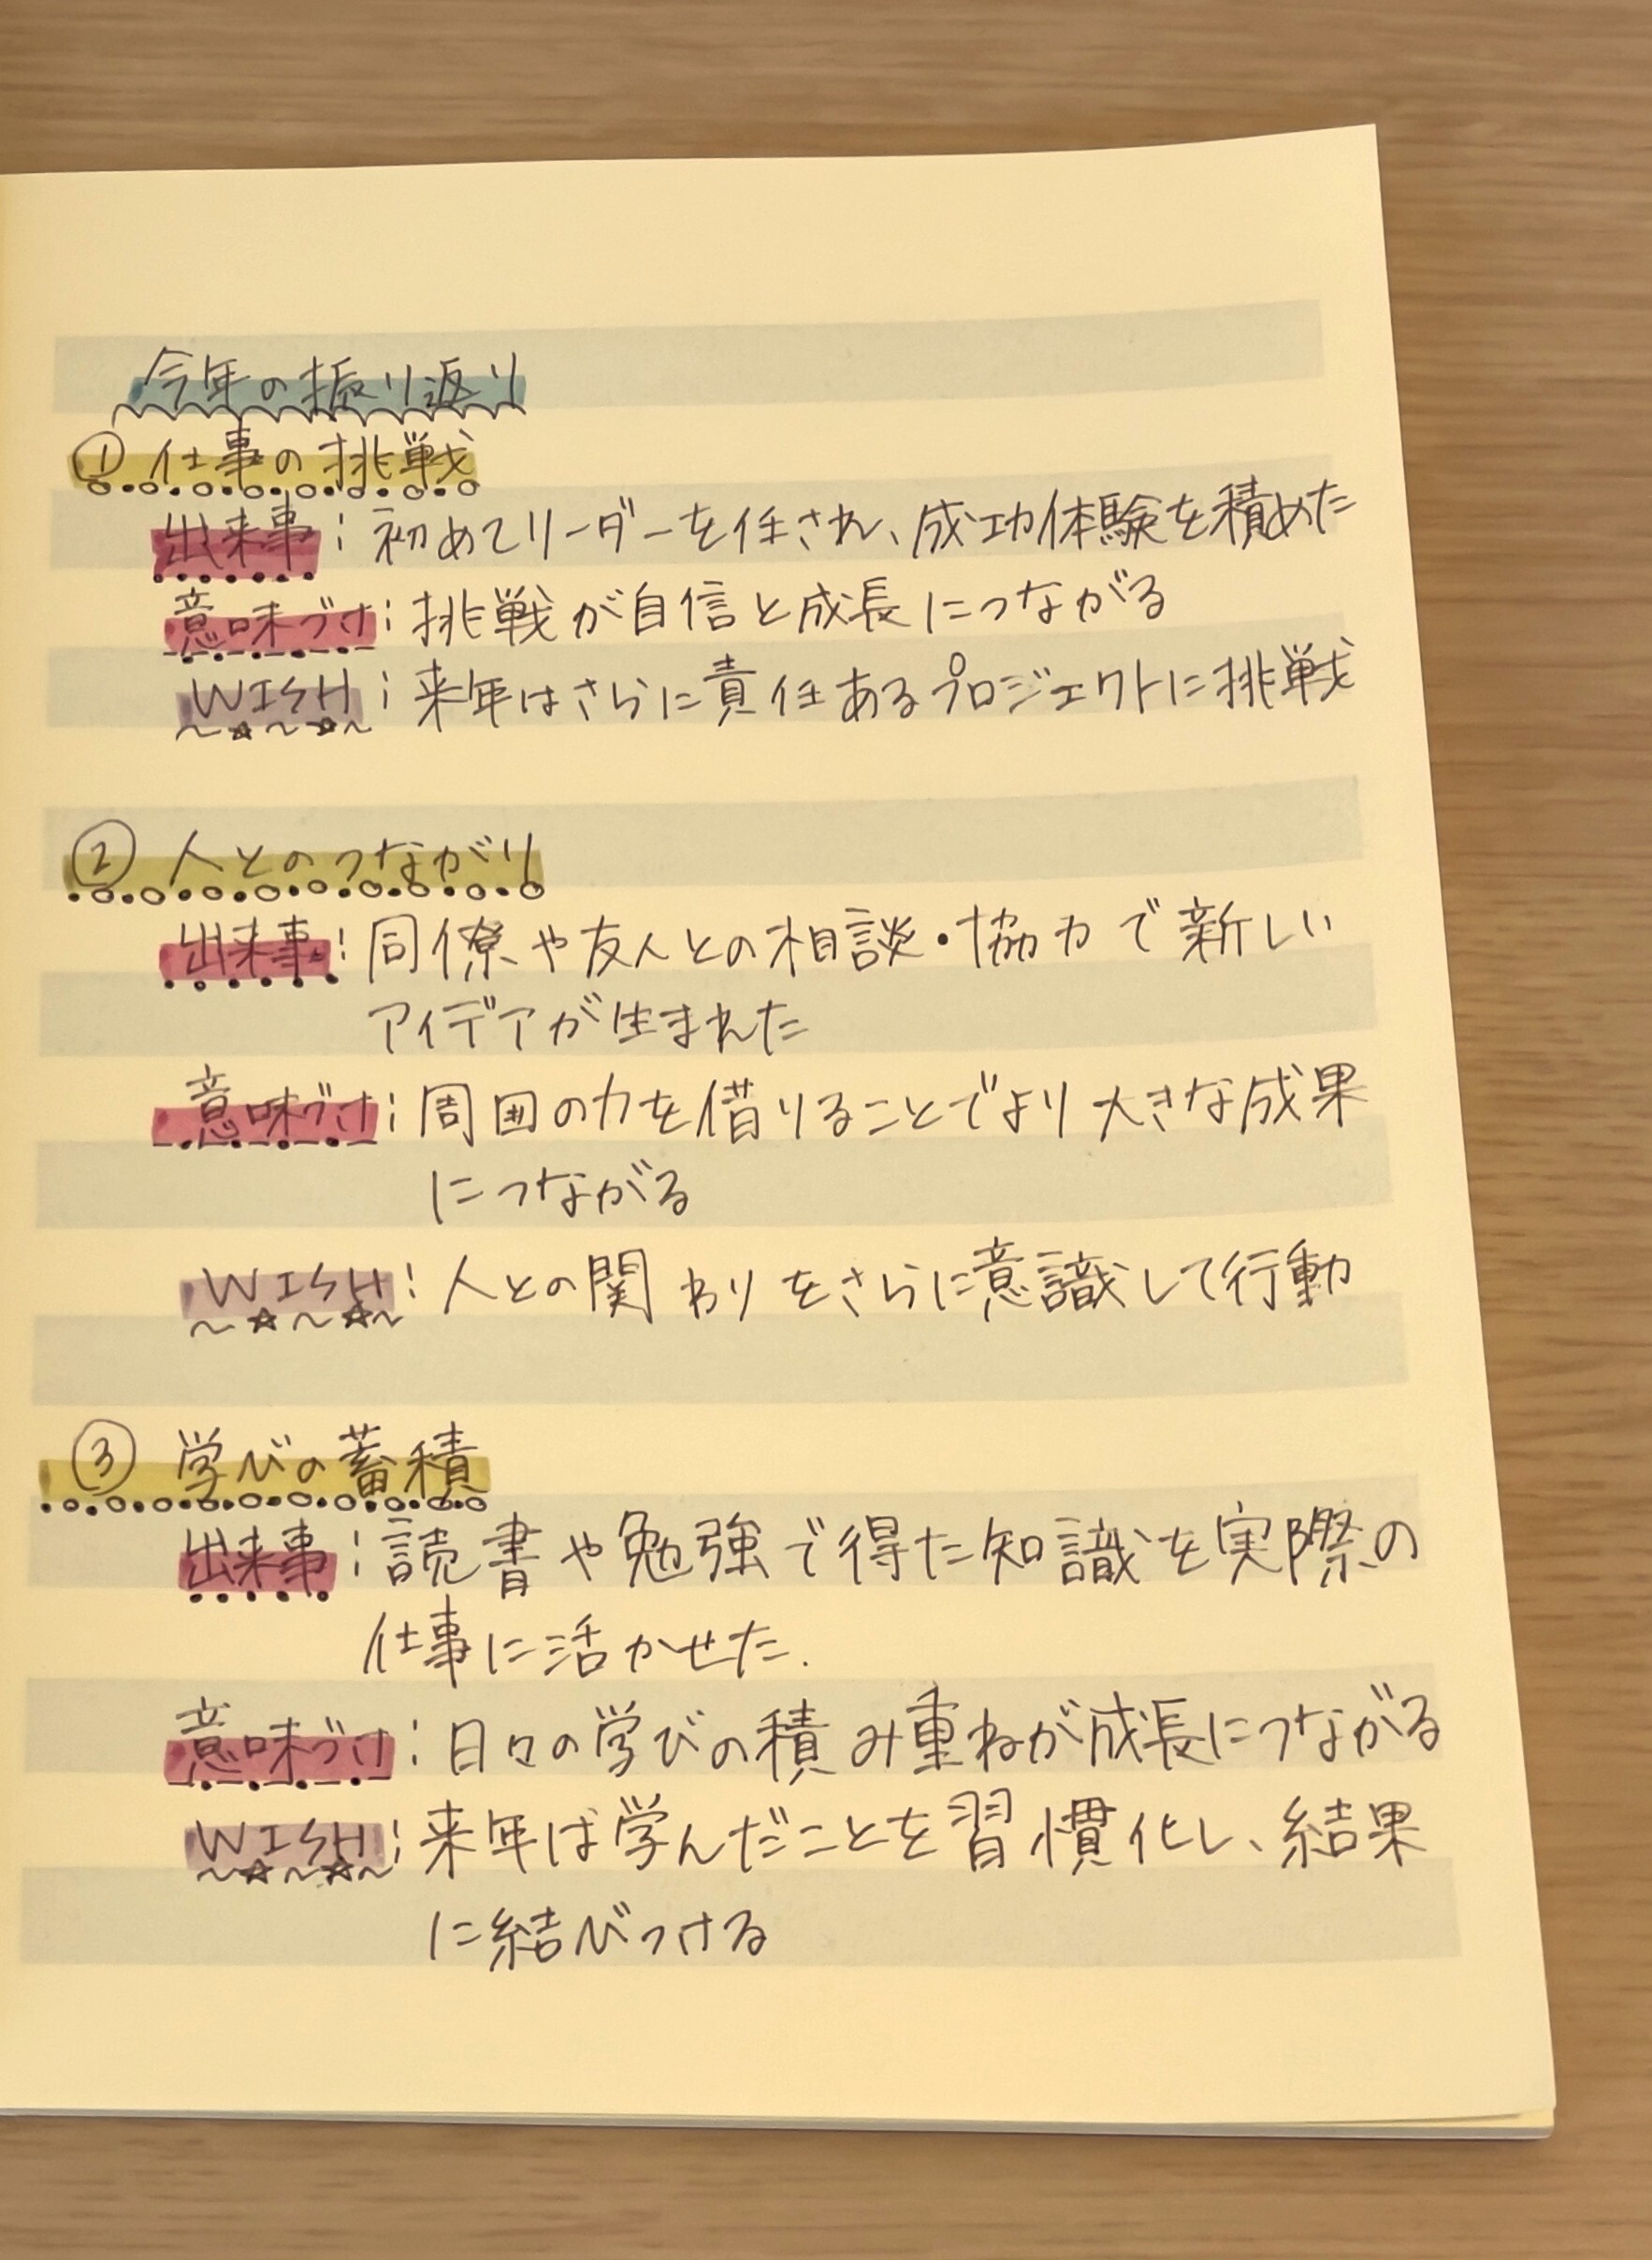 今年の振り返り
① 仕事の挑戦
出来事:初めてリーダーを任され、成功体験を積めた
意味づけ:挑戦が自信と成長につながる
WISH:来年はさらに責任あるプロジェクトに挑戦
② 人とのつながり
出来事:同僚や友人との相談・協力で新しい
アイデアが生まれた
意味づけ:周囲の力を借りることでより大きな成果
につながる
WISH:人との関わりをさらに意識して行動
③ 学びの蓄積
出来事:読書や勉強で得た知識を実際の
仕事に活かせた.
意味づけ:日々の学びの積み重ねが成長につながる
WISH:来年は学んだことを習慣化し、結果
に結びつける